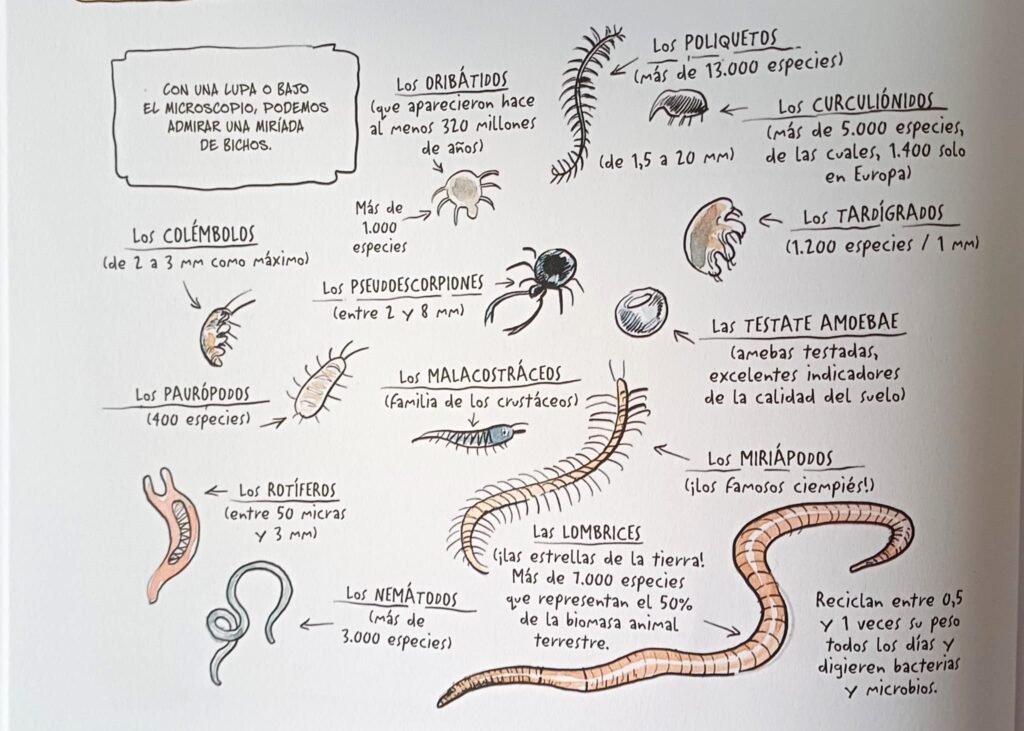 CON UNA LUPA O BAJO
EL MICROSCOPIO, PODEMOS
ADMIRAR UNA MIRÍADA
DE BICHOS.
Los ORIBÁTIDOS
(que aparecieron hace
al menos 320 millones
de años)
Más de
1.000
especies
Los POLIQUETOS
(más de 13.000 especies)
Los CURCULIÓNIDOS
(más de 5.000 especies,
de las cuales, 1.400 solo
en Europa)
(de 1,5 a 20 mm)
Los TARDÍGRADOS
(1.200 especies / 1 mm)
Los COLÉMBOLOS
(de 2 a 3 mm como máximo)
Los PSEUDOESCORPIONES
(entre 2 y 8 mm)
Las TESTATE AMOEBAE
(amebas testadas,
excelentes indicadores
de la calidad del suelo)
Los PAURÓPODOS
(400 especies)
Los MALACOSTRÁCEOS
(familia de los crustáceos)
Los MIRIÁPODOS
(¡los famosos ciempiés!)
Los ROTÍFEROS
(entre 50 micras
y 3 mm)
Las LOMBRICES
(¡las estrellas de la tierra!
Más de 7.000 especies
que representan el 50%
de la biomasa animal
terrestre.
Los NEMÁTODOS
(más de
3.000 especies)
Reciclan entre 0,5
y 1 veces su peso
todos los días y
digieren bacterias
y microbios.